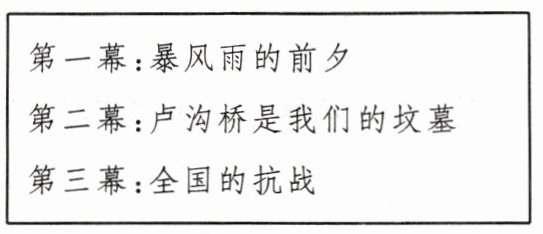 第一幕:暴风雨的前夕
第二幕:卢沟桥是我们的坟墓
第三幕:全国的抗战